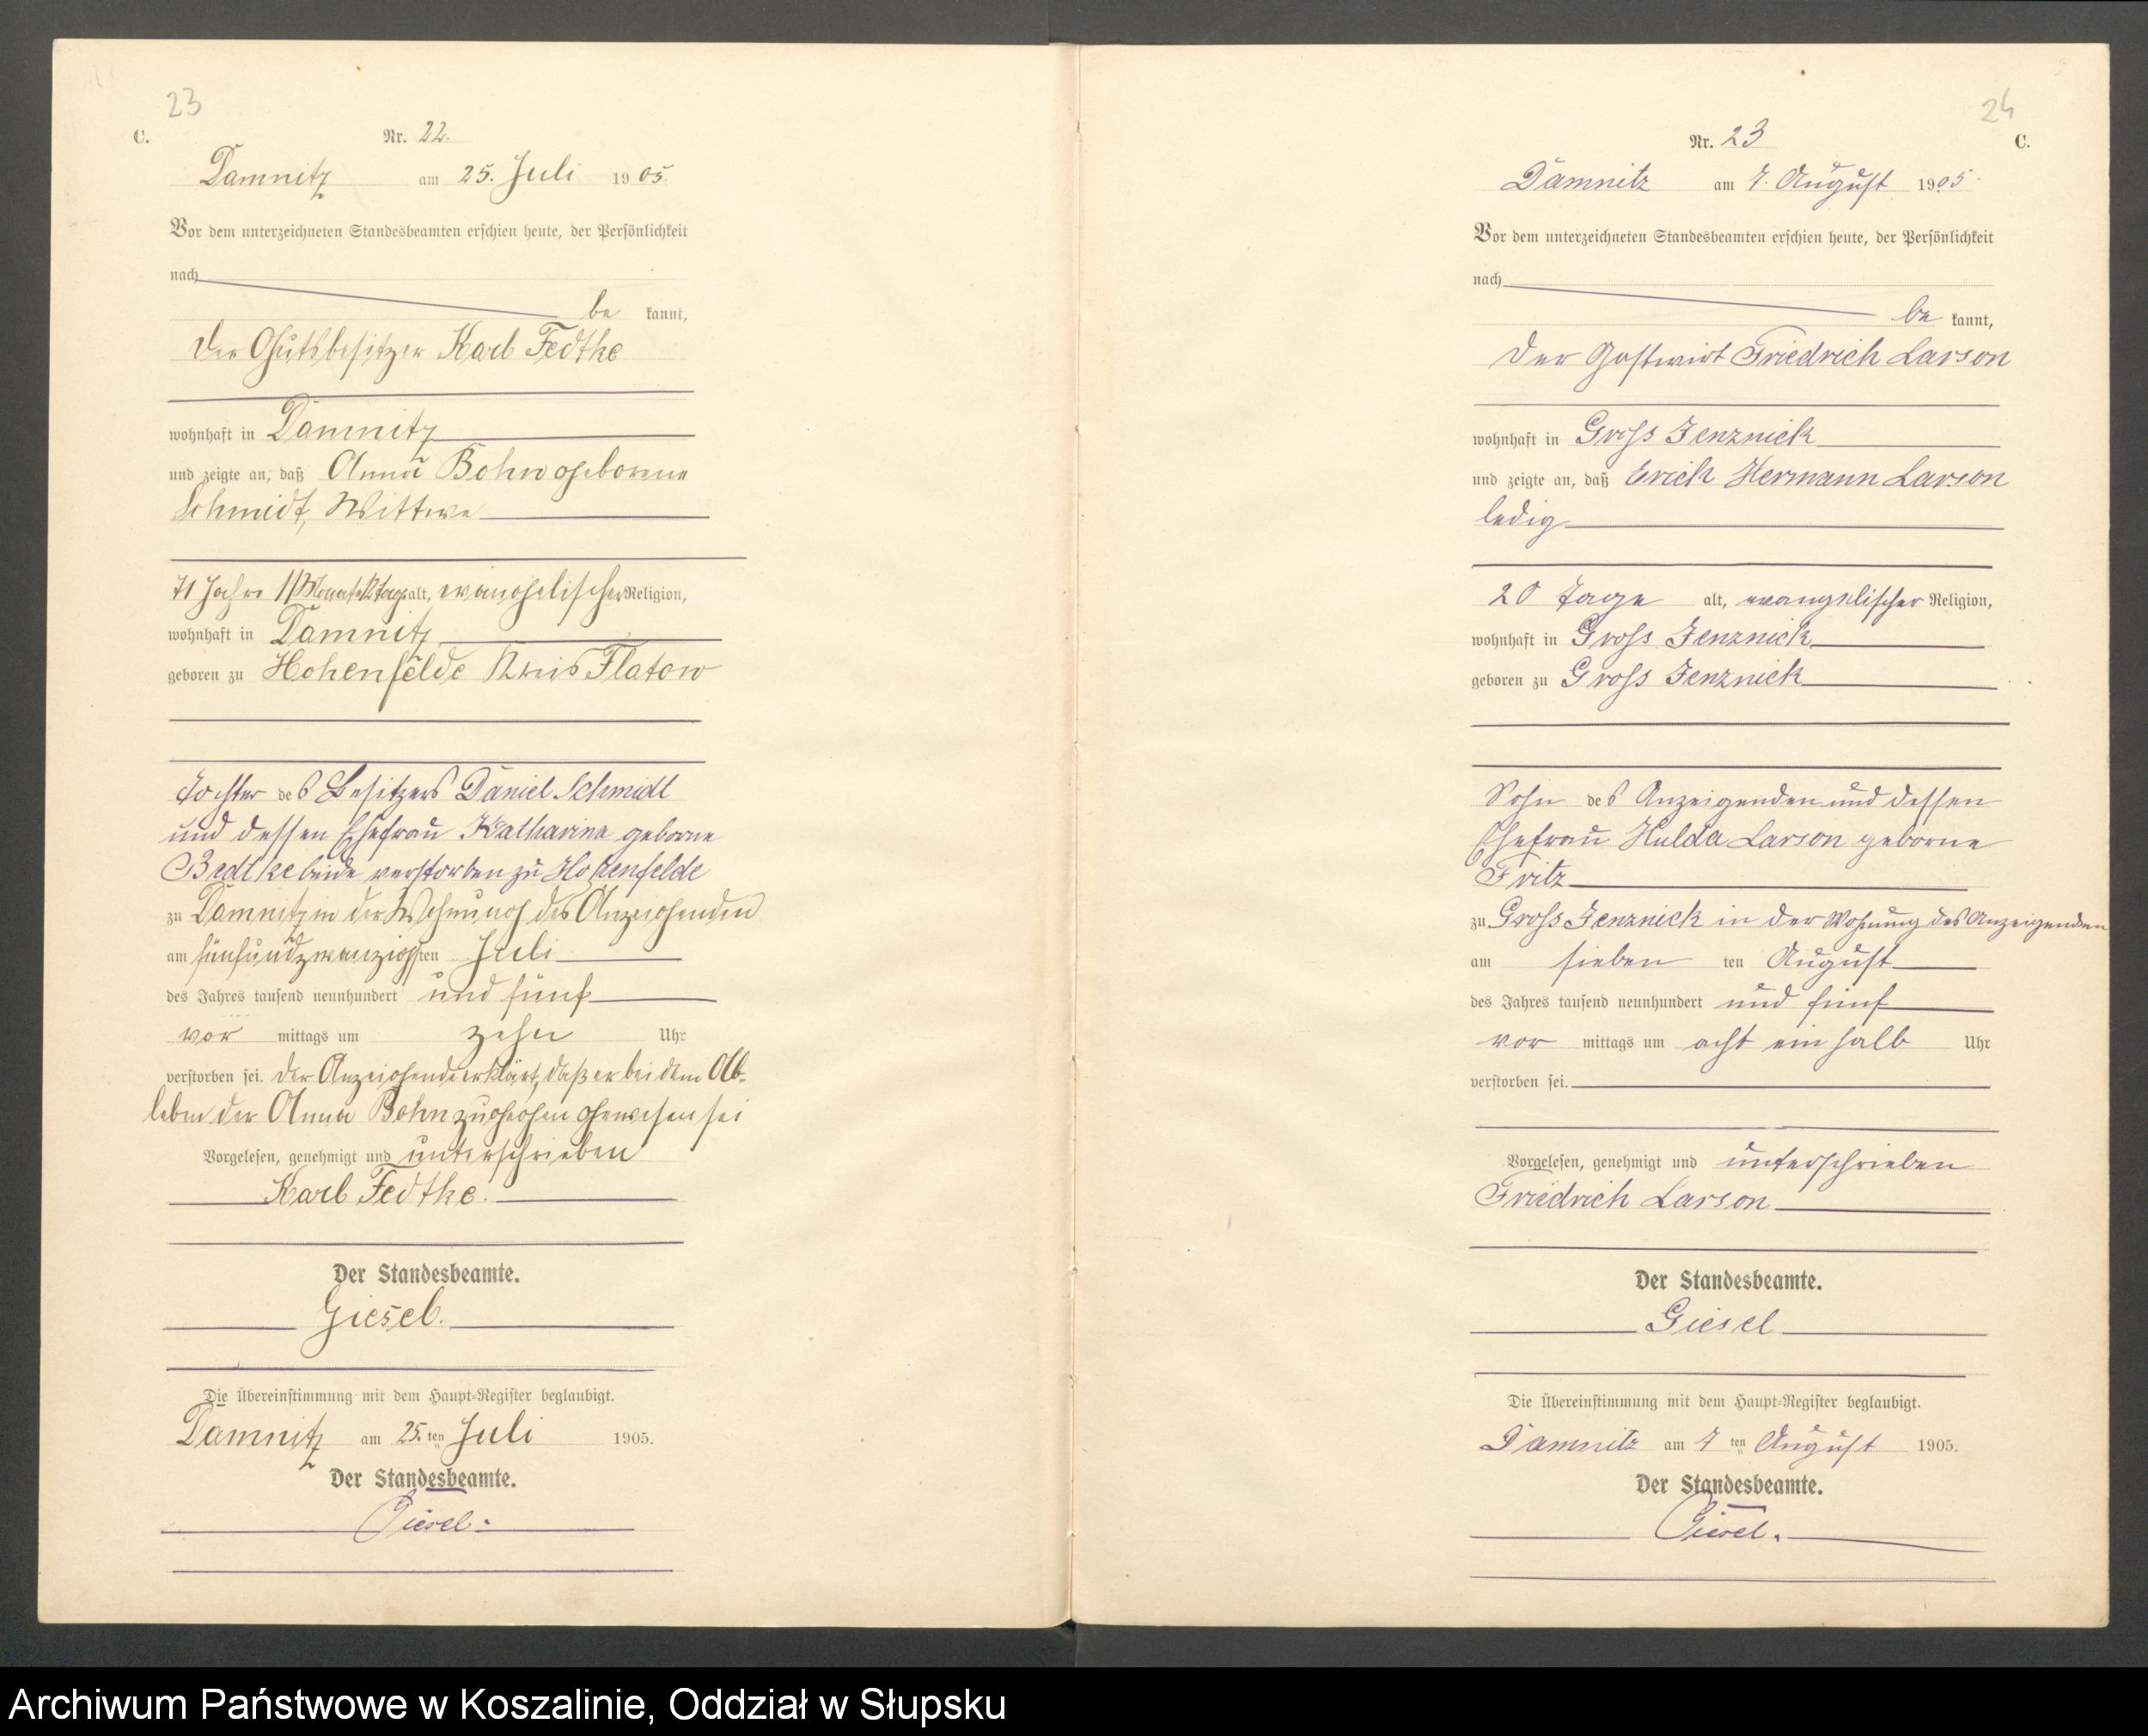 23
C.
Nr. 22.
Damnitz am 25. Juli 1905.
Vor dem unterzeichneten Standesbeamten erschien heute, der Persönlichkeit
nach
be kannt,
der Gutsbesitzer Karl Fedtke
wohnhaft in Damnitz
und zeigte an, daß Anna Bohn geborene
Schmidt, Wittwe
71 Jahre 11 Monate Tage alt, evangelischer Religion,
wohnhaft in Damnitz
geboren zu Hohenfelde Kreis Flatow
Tochter des Besitzers Daniel Schmidt
und dessen Ehefrau Katharina geborne
Bedtke beide verstorben zu Hohenfelde
zu Damnitz in der Wohnung des Anzeigenden
am fünfundzwanzigsten Juli
des Jahres tausend neunhundert und fünf
vor mittags um zehn Uhr
verstorben sei. Der Anzeigende erklärt, daß er bei dem Ab-
leben der Anna Bohn zugegen gewesen sei
Vorgelesen, genehmigt und unterschrieben
Karl Fedtke.
Der Standesbeamte.
Giesel.
Die Übereinstimmung mit dem Haupt-Register beglaubigt.
Damnitz am 25. ten Juli 1905.
Der Standesbeamte.
Giesel.
24
Nr. 23
C.
Damnitz am 7. August 1905.
Vor dem unterzeichneten Standesbeamten erschien heute, der Persönlichkeit
nach
be kannt,
der Gastwirt Friedrich Larson
wohnhaft in Gross Jenznick
und zeigte an, daß Erich Hermann Larson
ledig
20 Tage alt, evangelischer Religion,
wohnhaft in Gross Jenznick
geboren zu Gross Jenznick
Sohn des Anzeigenden und dessen
Ehefrau Hulda Larson geborne
Fritz
zu Gross Jenznick in der Wohnung des Anzeigenden
am sieben ten August
des Jahres tausend neunhundert und fünf
vor mittags um acht ein halb Uhr
verstorben sei.
Vorgelesen, genehmigt und unterschrieben
Friedrich Larson
Der Standesbeamte.
Giesel
Die Übereinstimmung mit dem Haupt-Register beglaubigt.
Damnitz am 7 ten August 1905.
Der Standesbeamte.
Giesel.
Archiwum Państwowe w Koszalinie, Oddział w Słupsku